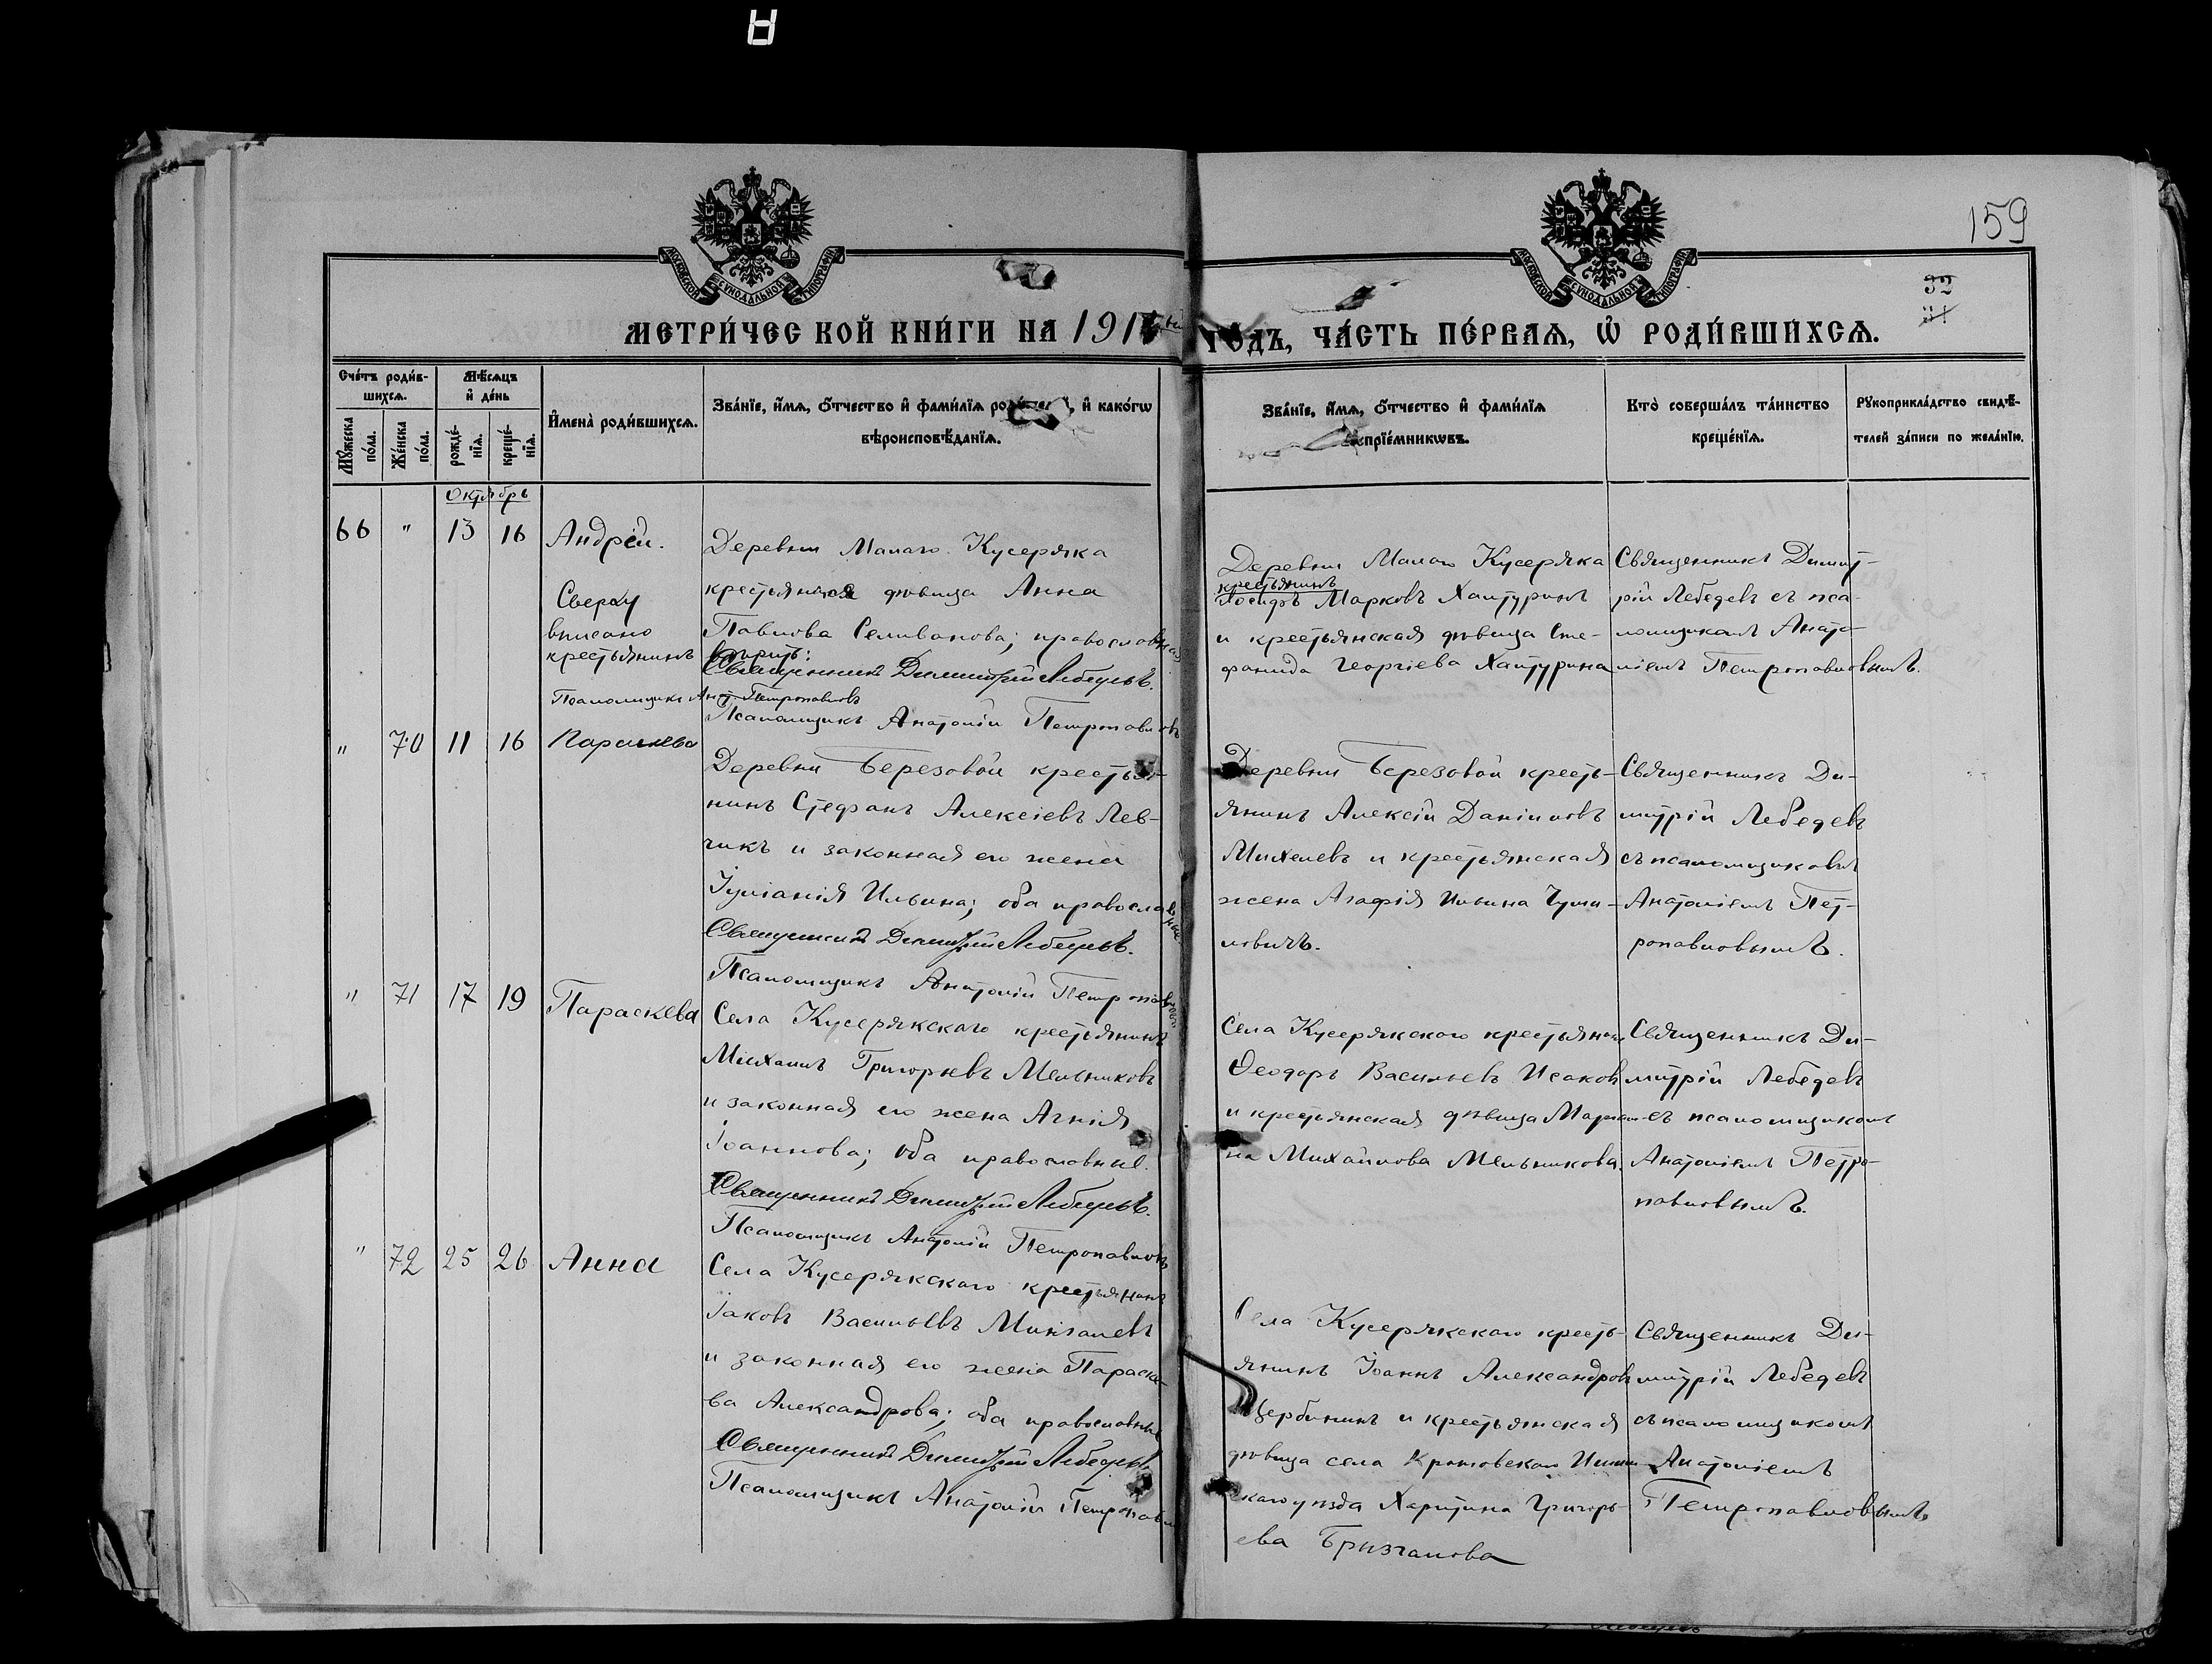 159
32
31
МОСКОВСКОЙ СѴНОДАЛЬНОЙ ТИПОГРАФІИ
МОСКОВСКОЙ СѴНОДАЛЬНОЙ ТИПОГРАФІИ
МЕТРИ́ЧЕСКОЙ КНИ́ГИ НА 191
ГО́ДЪ, ЧА́СТЬ ПЕ́РВАѦ, Ѽ РОДИ́ВШИХСѦ.
Сче́тъ роди́в-
шихсѧ.
Мꙋ́жеска по́ла.
Же́нска по́ла.
Мѣ́сѧцъ
и҆ де́нь
рожде́-
нїѧ.
креще́-
нїѧ.
И҆мена̀ роди́вшихсѧ.
Зва́нїе, и҆́мѧ, ѻ҆́тчество и҆ фами́лїѧ и҆ како́гѡ
вѣроисповѣ́данїѧ.
Зва́нїе, и҆́мѧ, ѻ҆́тчество и҆ фами́лїѧ
воспрїе́мникѡвъ.
Кто̀ соверша́лъ та́инство
креще́нїѧ.
Рꙋкоприкла́дство свидѣ́-
телей за́писи по жела́нїю.
Октябрь
66 " 13 16 Андрей.
Деревни Малаго Кусеряка
крестьянская дѣвица Анна
Павлова Селиванова; православная
Священникъ Димитрій Лебедевъ.
Псаломщикъ Анатолій Петропавловъ
Сверху
вписано
крестьянинъ
вѣрить:
Псаломщикъ Ант. Петропавловъ
Деревни Малаго Кусеряка
крестьянинъ
Іосифъ Марковъ Хаптуринъ
и крестьянская дѣвица Сте-
фанида Георгіева Хаптурина
Священникъ Димит-
рій Лебедевъ съ пса-
ломщикомъ Анато-
ліемъ Петропавловымъ.
" 70 11 16 Параскева
Деревни Березовой крестья-
нинъ Стефанъ Алексіевъ Лев-
чикъ и законная его жена
Іуліанія Ильина; оба православные
Священникъ Димитрій Лебедевъ.
Псаломщикъ Анатолій Петропавловъ
Деревни Березовой кресть-
янинъ Алексій Даніиловъ
Михелевъ и крестьянская
жена Агафія Ильина
ловичъ.
Священникъ Ди-
митрій Лебедевъ
съ псаломщикомъ
Анатоліемъ Пет-
ропавловымъ.
" 71 17 19 Параскева
Села Кусерякскаго крестьянинъ
Михаилъ Григорьевъ Мельниковъ
и законная его жена Агнія
Іоаннова; оба православные.
Священникъ Димитрій Лебедевъ.
Псаломщикъ Анатолій Петропавловъ
Села Кусерякского крестьянинъ
Ѳеодоръ Васильевъ Исаковъ
и крестьянская дѣвица Маріам-
на Михайлова Мельникова.
Священникъ Ди-
митрій Лебедевъ
съ псаломщикомъ
Анатоліемъ Петро-
павловымъ.
" 72 25 26 Анна
Села Кусерякскаго крестьянинъ
Іаковъ Васильевъ Мингалевъ
и законная его жена Параске-
ва Александрова; оба православные
Священникъ Димитрій Лебедевъ
Псаломщикъ Анатолій Петропавловъ
Села Кусерякскаго кресть-
янинъ Іоаннъ Александровъ
Щербининъ и крестьянская
дѣвица села Кротовскаго Ишим-
скаго уѣзда Харитина Григорь-
ева Бризгалова
Священникъ Ди-
митрій Лебедевъ
съ псаломщикомъ
Анатоліемъ
Петропавловымъ.